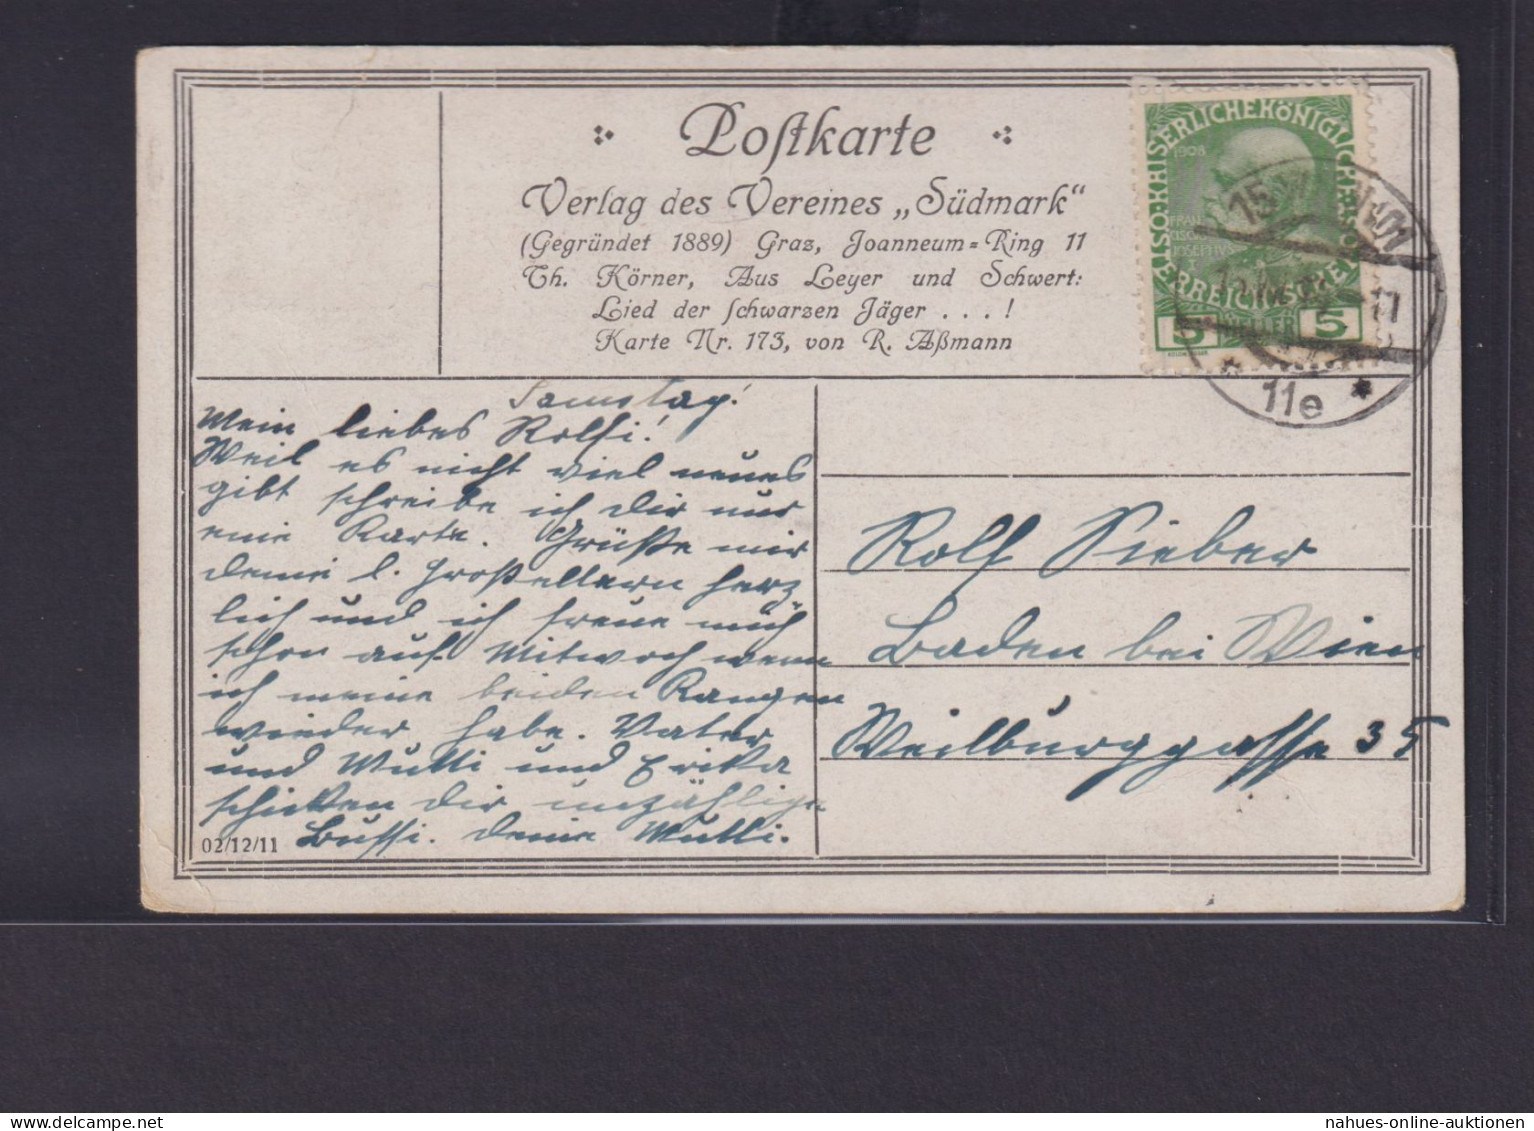 Postkarte
Verlag des Vereines „Südmark“
(Gegründet 1889) Graz, Joanneum=Ring 11
Th. Körner, Aus Leyer und Schwert:
Lied der schwarzen Jäger . . . !
Karte Nr. 173, von R. Aßmann
KAISERLICHEKÖNIGLICHE
1908
FRAN
CISC
JOSEPHVS
5 HELLER 5
15 WIEN
11e
Samstag!
Mein liebes Rolfi!
Weil es nicht viel neues
gibt schreibe ich Dir nur
eine Karte. Grüße mir
deine l. Großeltern herz
lich und ich freue mich
schon auf Mittwoch wenn
ich meine beiden Rangen
wieder habe. Vater
und Mutti und Erika
schicken Dir unzählige
Bussi. Deine Mutti.
02/12/11
Rolf Sieber
Baden bei Wien
Weilburggasse 35
nahues-online-auktionen